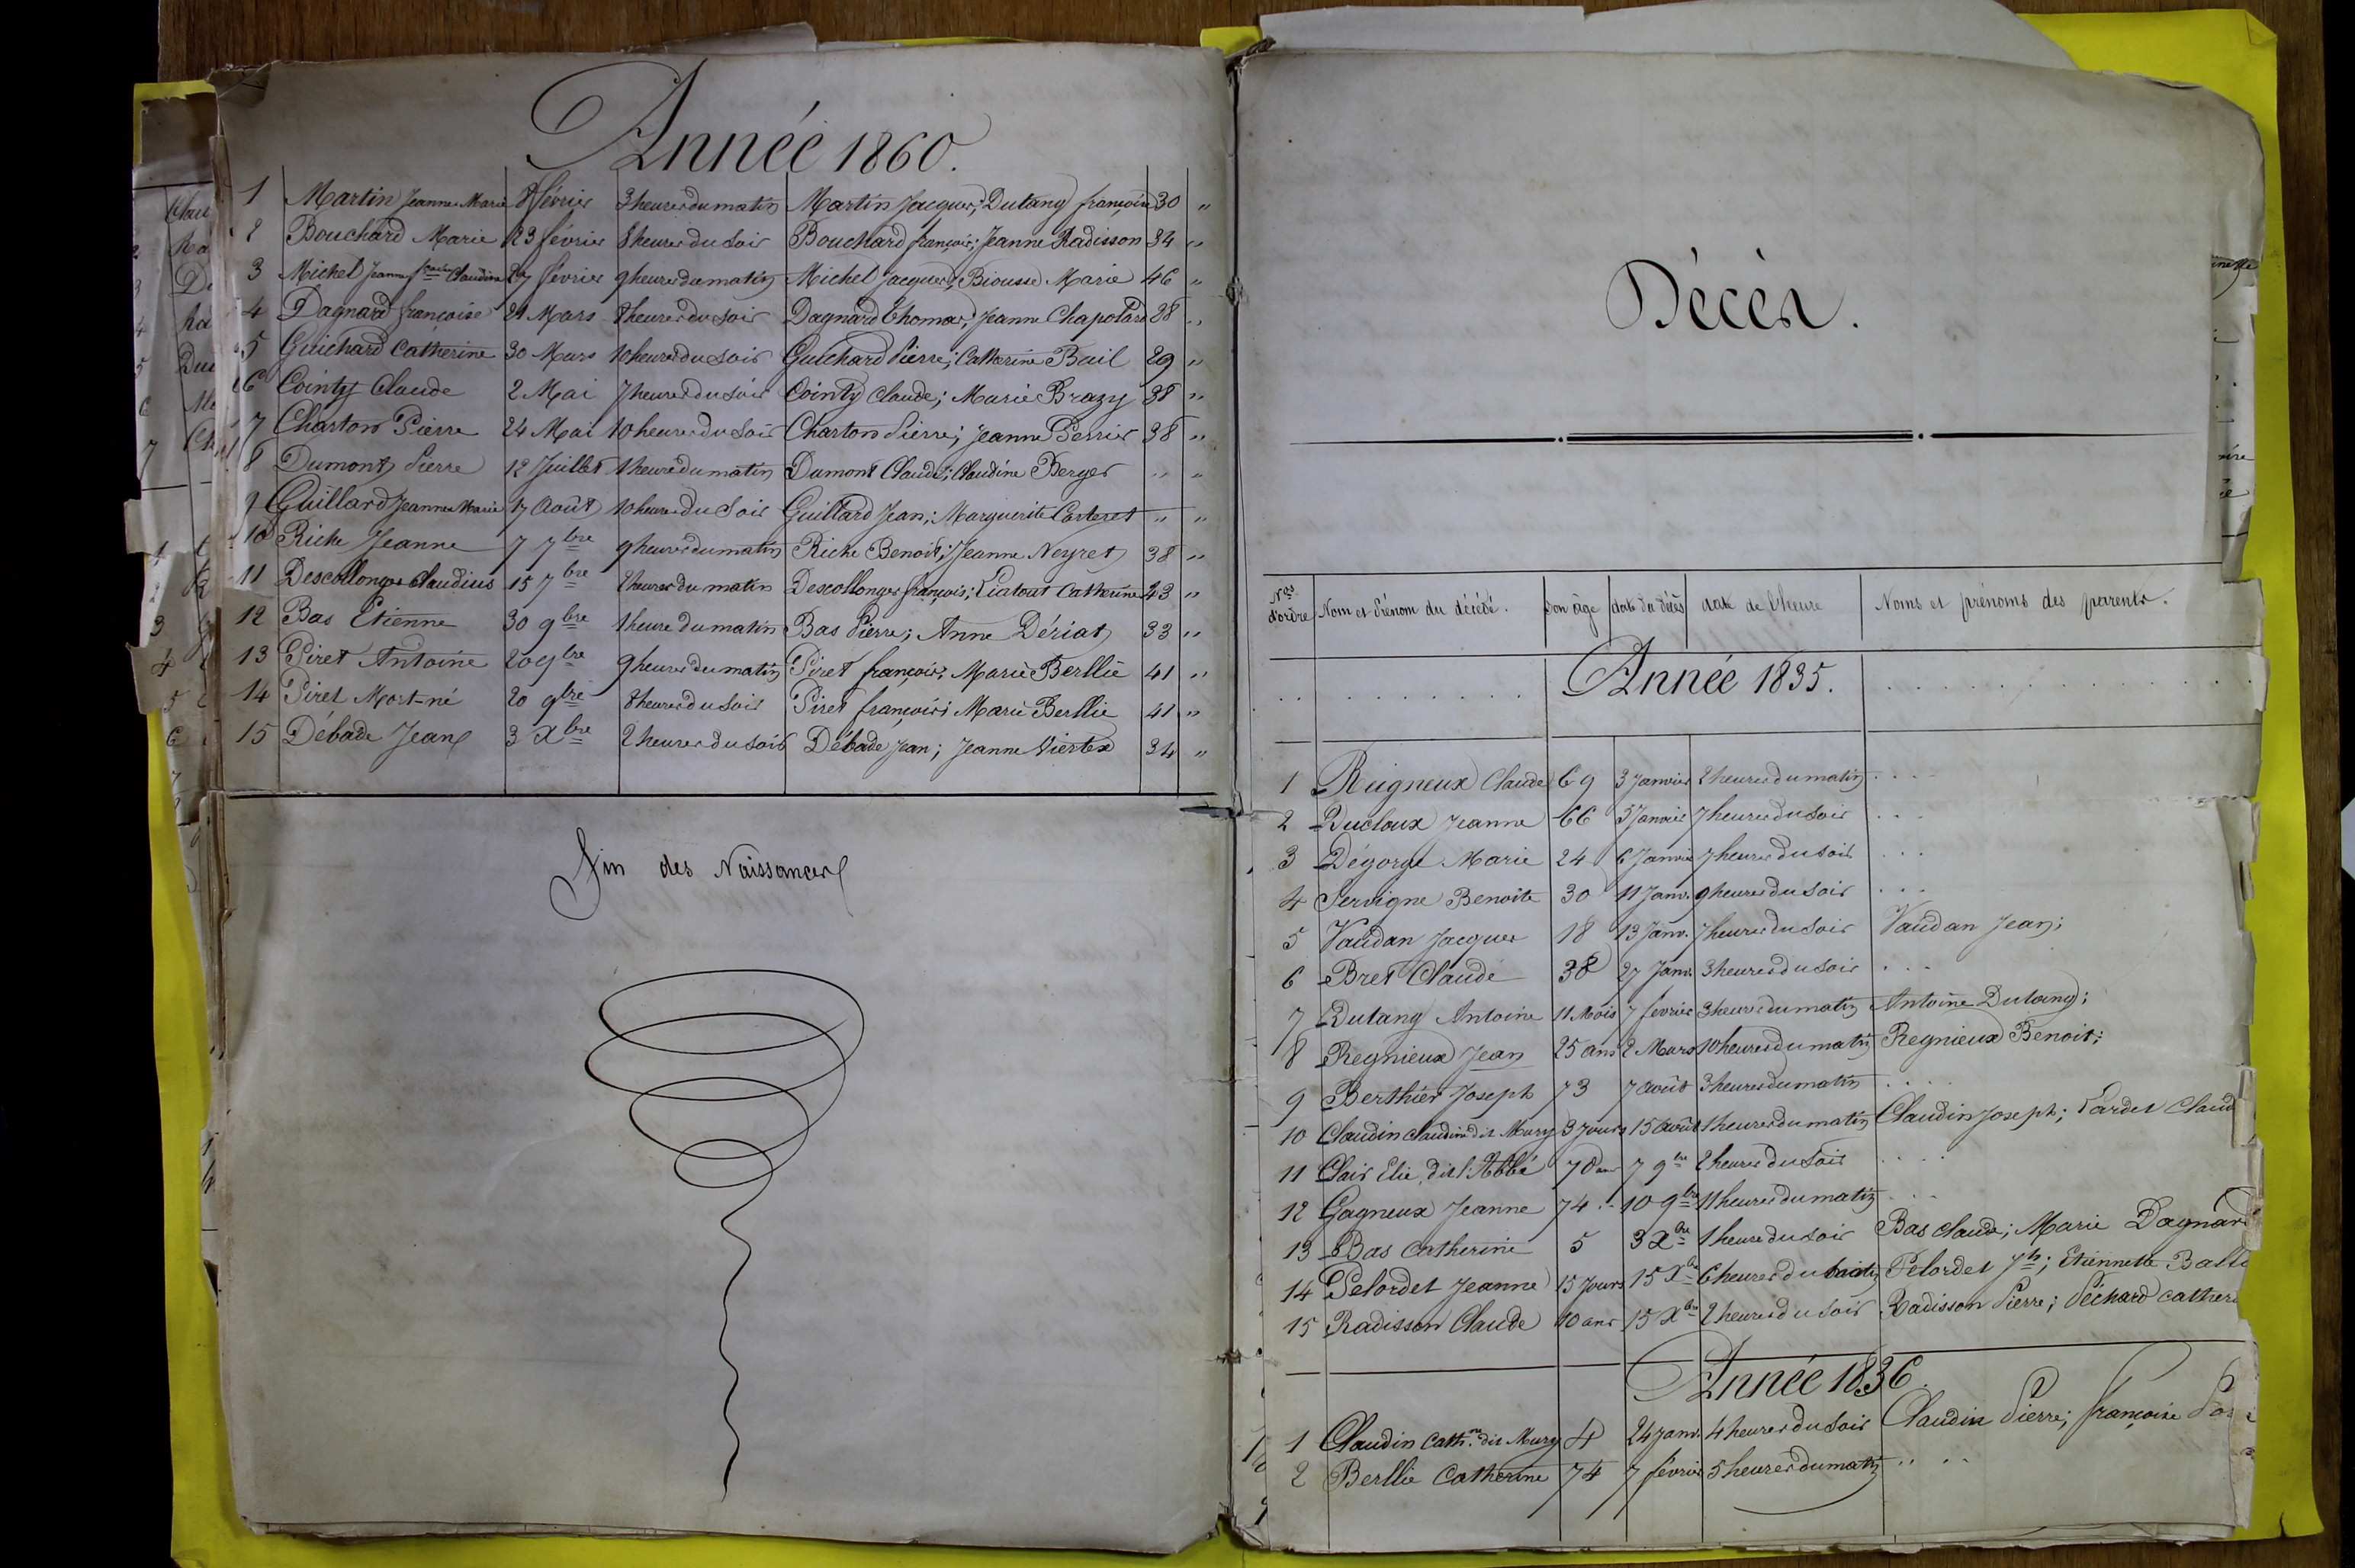 Année 1860.
1 Martin Jeanne Marie 8 février 3 heures du matin Martin Jacques; Dutang françoise 30 "
2 Bouchard Marie 23 février 8 heures du Soir Bouchard françois; Jeanne Radisson 34 "
3 Michel Jeanne Claudine 27 février 9 heures du matin Michel Jacques; Biousse Marie 46 "
4 Dagnard françoise 21 Mars 8 heures du Soir Dagnard Thomas; Jeanne Chapolard 28 "
5 Guichard Catherine 30 Mars 10 heures du Soir Guichard Pierre; Catherine Bail 29 "
6 Cointy Claude 2 Mai 7 heures du Soir Cointy Claude; Marie Brazy 38 "
7 Charton Pierre 24 Mai 10 heures du Soir Charton Pierre; Jeanne Perrier 38 "
8 Dumont Pierre 12 Juillet 1 heure du matin Dumont Claude; Claudine Berger " "
9 Guillard Jeanne Marie 17 Août 10 heures du Soir Guillard Jean; Marguerite Carteret " "
10 Riche Jeanne 7 7bre 9 heures du matin Riche Benoit; Jeanne Neyret 38 "
11 Descollonges Claudius 15 7bre 2 heures du matin Descollonges françois; Piatout Catherine 43 "
12 Bas Etienne 30 9bre 1 heure du matin Bas Pierre; Anne Dériat 33 "
13 Piret Antoine 20 9bre 9 heures du matin Piret françois; Marie Berllie 41 "
14 Piret Mort-né 20 9bre 8 heures du Soir Piret françois; Marie Berllie 41 "
15 Débade Jean 3 Xbre 2 heures du Soir Débade Jean; Jeanne Viertex 34 "
fin des Naissances
Décès.
Nos d'ordre Nom et Prénom du décédé. Son âge date du décès date de l'heure Noms et prénoms des parents.
Année 1835.
1 Reigneux Claude 69 3 Janvier 2 heures du matin
2 Ducloux Jeanne 66 5 Janvier 7 heures du Soir
3 Dégorge Marie 24 6 Janvier 7 heures du Soir
4 Servigne Benoite 30 11 Janv. 9 heures du Soir
5 Vaudan Jacques 18 13 Janv. 7 heures du Soir Vaudan Jean;
6 Bret Claude 38 27 Janv. 3 heures du Soir
7 Dutang Antoine 11 Mois 7 février 3 heures du matin Antoine Dutang;
8 Regnieux Jean 25 ans 2 Mars 10 heures du matin Regnieux Benoit;
9 Berthier Joseph 73 7 août 3 heures du matin
10 Claudin Claudine dit Mury 3 jours 15 Août 1 heures du matin Claudin Joseph; Pardet Claud
11 Clair Elie, dit l'Abbé 70 ans 7 9bre 2 heures du Soir
12 Gagneux Jeanne 74 " 10 9bre 11 heures du matin
13 Bas Catherine 5 3 Xbre 1 heure du Soir Bas Claude; Marie Dagnard
14 Pelordet Jeanne 15 Jours 15 Xbre 6 heures du matin Pelordet Jh; Etiennette Ball
15 Radisson Claude 10 ans 15 Xbre 2 heures du Soir Radisson Pierre; Péchard Cather
Année 1836.
1 Claudin Cathne dit Mury 4 24 janv. 4 heures du Soir Claudin Pierre; françoise
2 Berllie Catherine 74 7 février 5 heures du matin